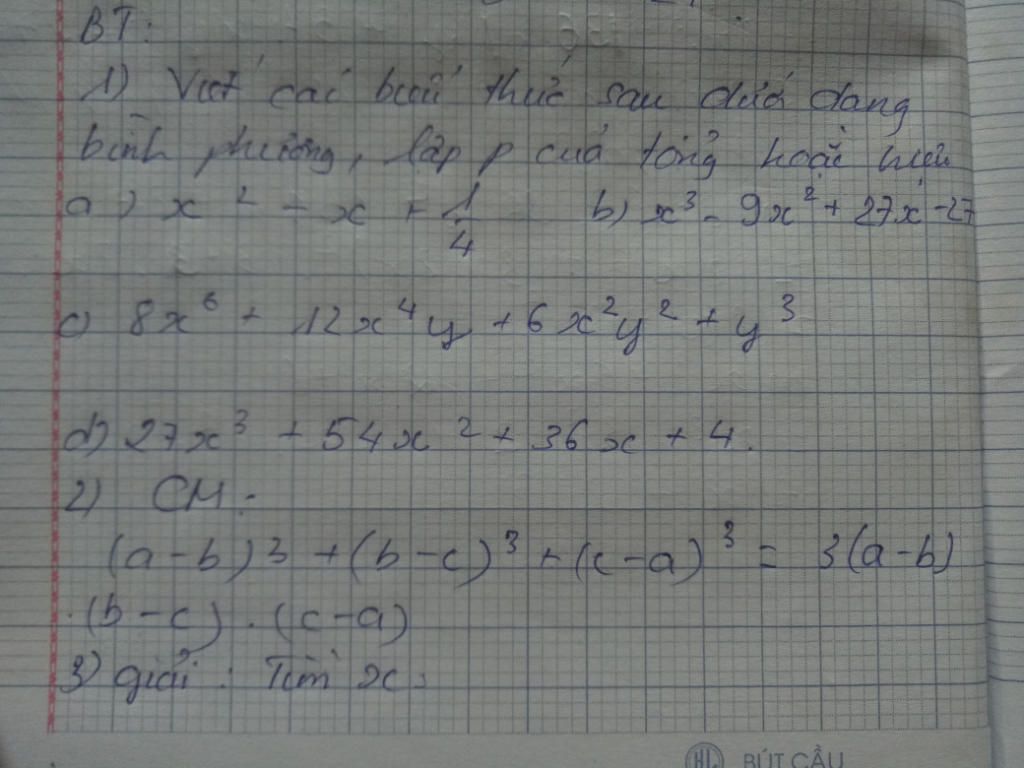 BT:
1) Viết các biểu thức sau dưới dạng
bình phương, lập p của tổng hoặc hiệu
a) x² - x + 1/4 b) x³ - 9x² + 27x - 27
c) 8x⁶ + 12x⁴y + 6x²y² + y³
d) 27x³ + 54x² + 36x + 4.
2) CM:
(a-b)³ + (b-c)³ + (c-a)³ = 3(a-b)
.(b-c).(c-a)
3) giải: Tìm x:
HL BÚT CẦU